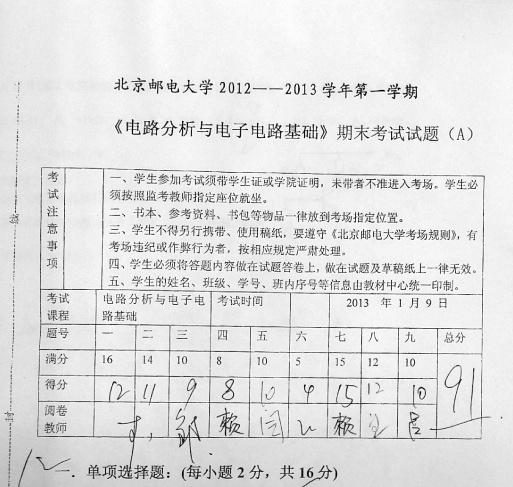 北京邮电大学2012——2013学年第一学期
《电路分析与电子电路基础》期末考试试题（A）
考试注意事项
一、学生参加考试须带学生证或学院证明，未带者不准进入考场。学生必
须按照监考教师指定座位就坐。
二、书本、参考资料、书包等物品一律放到考场指定位置。
三、学生不得另行携带、使用稿纸，要遵守《北京邮电大学考场规则》，有
考场违纪或作弊行为者，按相应规定严肃处理。
四、学生必须将答题内容做在试题答卷上，做在试题及草稿纸上一律无效。
五、学生的姓名、班级、学号、班内序号等信息由教材中心统一印制。
考试课程 电路分析与电子电路基础 考试时间 2013 年 1 月 9 日
题号 一 二 三 四 五 六 七 八 九 总分
满分 16 14 10 8 10 5 15 12 10
得分 12 11 9 8 10 4 15 12 10 91
阅卷教师 赖 闫 赖 吕
一．单项选择题：(每小题 2 分，共 16 分)